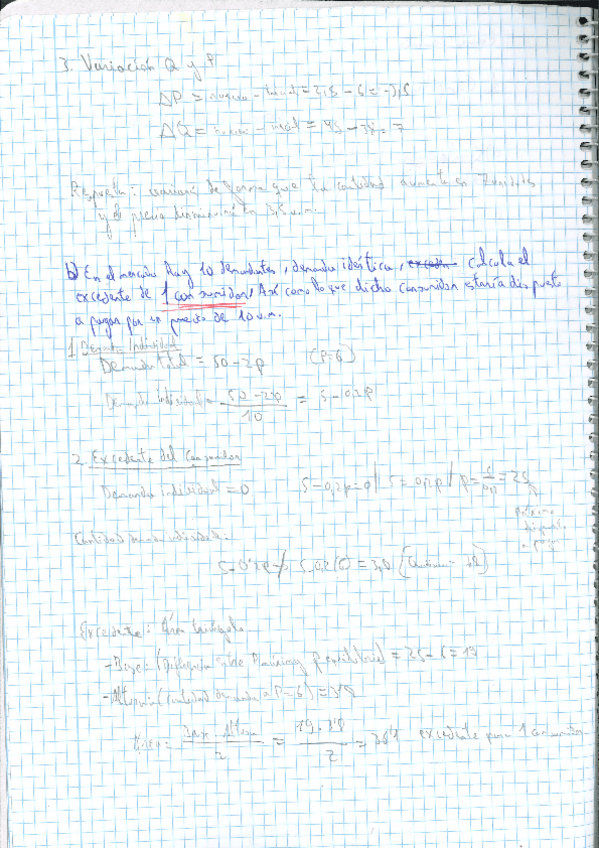 3. Variación Q y P
ΔP = nuevo - inicial = 2,5 - 6 = -3,5
ΔQ = - = 45 - 38 = 7
Respuesta: de forma que la cantidad aumenta en 7 unidades
y el precio disminuirá en 3,5 u.m.
b) En el mercado hay 10 demandantes, demanda idéntica, calcula el
excedente de 1 consumidor, Así como lo que dicho consumidor estaría dispuesto
a pagar por un precio de 10 u.m.
1. Demanda Individual
Demanda total = 50-2p (P=6)
Demanda individual = 50-2p / 10 = 5-0,2p
2. Excedente del Consumidor
Demanda individual = 0 5-0,2p=0 / 5=0,2p / p = 5/0,2 = 25
Cantidad demandada:
5-0,2p → 5-0,2(6) = 3,8
Excedente: Área triángulo
- Base = (Diferencia entre Máximo y P equilibrio) = 25-6=19
- Altura (cantidad demandada a P=6) = 3'8
Área = Base · Altura / 2 = 19·3'8 / 2 = 36'1 excedente para 1 consumidor